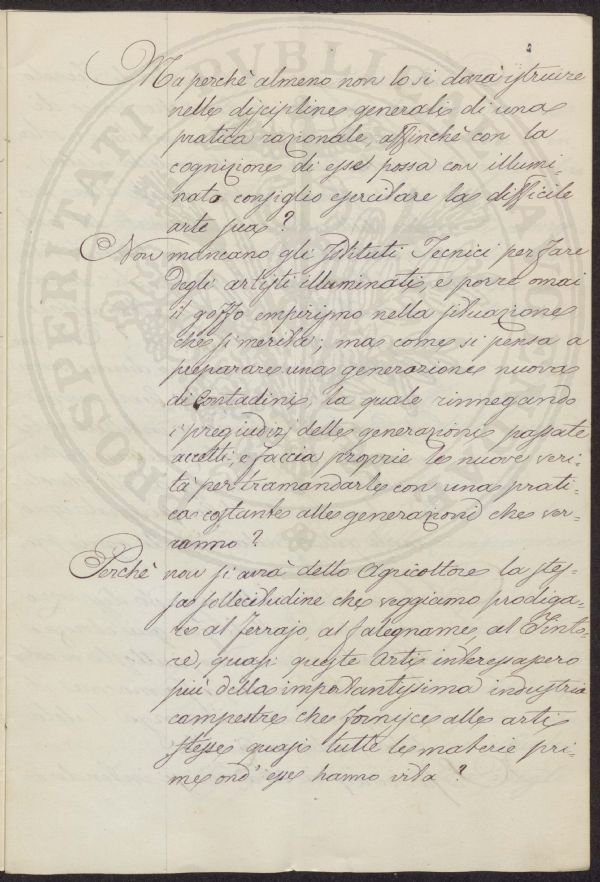 2
Ma perchè almeno non lo si dovrà istruire
nelle discipline generali di una
pratica razionale, affinchè con la
cognizione di esse possa con illumi-
nato consiglio esercitare la difficile
arte sua?
Non mancano gli Istituti Tecnici per fare
degli artisti illuminati, e porre omai
il goffo empirismo nella situazione
che si merita; ma come si pensa a
preparare una generazione nuova
di Contadini, la quale rinnegando
i pregiudizj delle generazioni passate
accetti, e faccia proprie le nuove veri-
tà per tramandarle con una prati-
ca costante alle generazioni che ver-
ranno?
Perchè non si avrà dello Agricoltore la stes-
sa sollecitudine che veggiamo prodiga-
re al Ferrajo, al falegname, al Tinto-
re, quasi queste Arti interessassero
più della importantissima industria
campestre che fornisce alle arti
stesse quasi tutte le materie pri-
me ond' esse hanno vita?
PROSPERITATI PVBLI